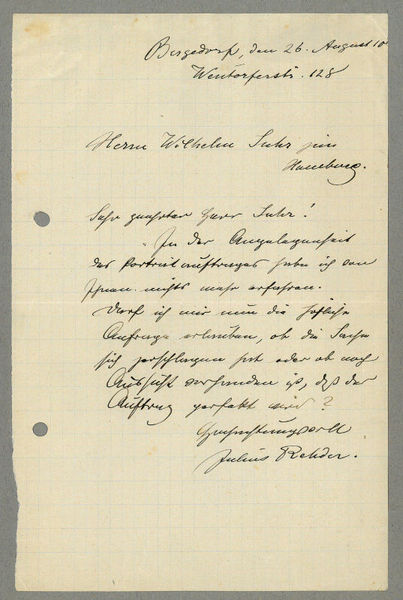 Bergedorf, den 26. August 10
Wentorferstr. 128
Herrn Wilhelm Suhr jun
Hamburg.
Sehr geehrter Herr Suhr!
In der Angelegenheit
des Porträtauftrages habe ich von
Ihnen nichts mehr erfahren.
Darf ich mir nun die höfliche
Anfrage erlauben, ob die Sache
sich zerschlagen hat oder ob noch
Aussicht vorhanden ist, daß der
Auftrag perfekt wird?
Hochachtungsvoll
Julius Rehder.